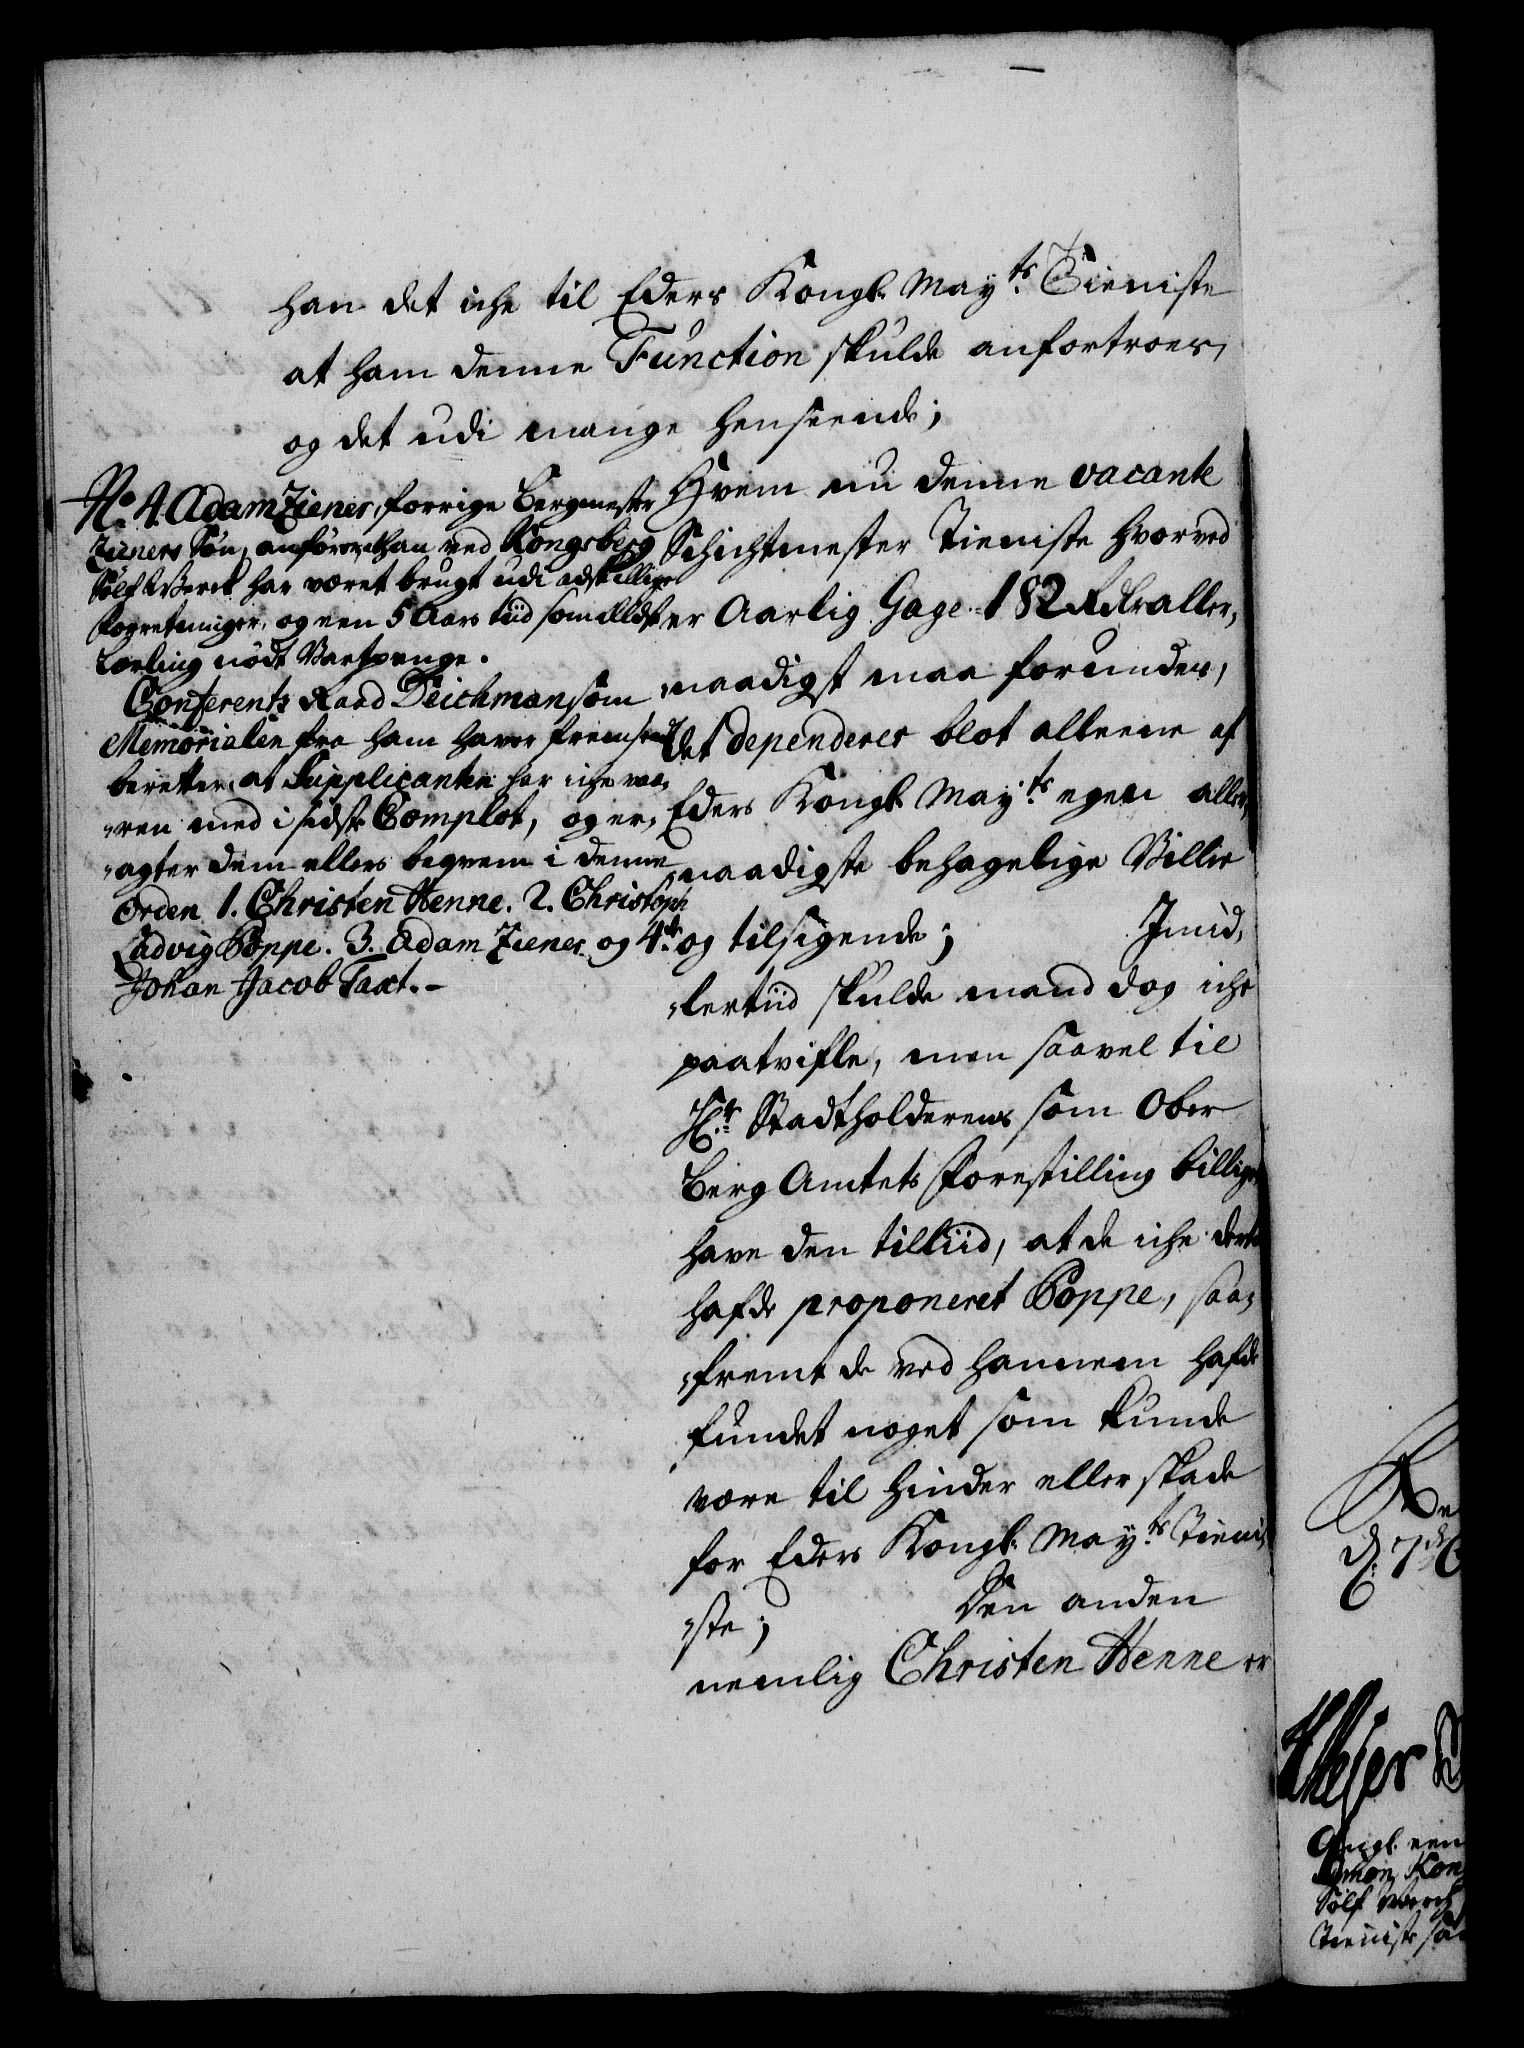 han det iche til Eders Kongl. May.ts Tieniste
at ham denne Function skulde anfortroes,
og det udi mange henseende;
No. 4. Adam Ziener, forrige Bergmester
Zieners Søn, anfører at han ved Kongsberg
Sølf Werck har været brugt udi adskillige
forretninger, og een 5 Aars tiid som Eldste
Lærling nødt Vartpenge.
Conferentz Raad Deichman som
Memorialen fra ham haver fremsendt
beretter, at Supplicanten har iche væ-
-ren med i sidste Complot, og er-
-agter dem ellers beqvem i denne
Orden 1. Christen Henne. 2. Christoph
Ludvig Poppe. 3. Adam Ziener og 4de
Johan Jacob Taxt. -
Hvem nu denne vacante
Schichtmester Tieniste hvorved
er Aarlig Gage 182 Rdlr aller-
naadigst maa forundes,
det dependerer blot alleene af
Eders Kongl. May.ts egen aller-
naadigste behagelige Villie
og tilsigende; Imid-
-lertiid skulde mand dog iche
paatvifle, men saavel til
Hr. Stadtholderens som Ober
Berg Amtets Forestilling billigen
have den tilliid, at de iche dertil
hafde proponeret Poppe, saa-
-fremt de ved hannem hafde
fundet noget som kunde
være til hinder eller skade
for Eders Kongl. May.ts Tieni-
-ste; Den anden
nemlig Christen Henne er